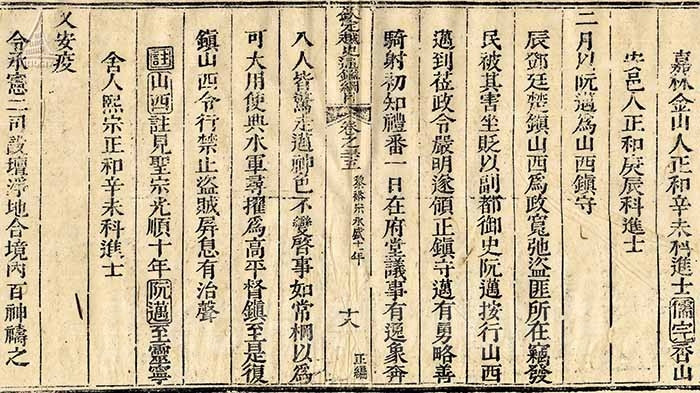 嘉林金山人正和辛未科進士儒宗香山
安邑人正和庚辰科進士
二月以阮邁爲山西鎮守
辰鄧廷楚鎮山西爲政寬弛盜匪所在竊發
民被其害坐貶以副都御史阮邁按行山西
邁到莅政令嚴明遂領正鎮守邁有勇略善
騎射初知禮番一日在府堂議事有逸象奔
欽定越史通鑑綱目
卷之三五
黎裕宗永盛十年
十八
正編
入人皆驚走邁神色不變啓事如常棡以爲
可大用使典水軍尋擢爲高平督鎮至是復
鎮山西令行禁止盜賊屏息有治聲
註山西註見聖宗光順十年阮邁至靈寧
舍人熙宗正和辛未科進士
乂安疫
令承憲二司設壇淨地合境內百神禱之